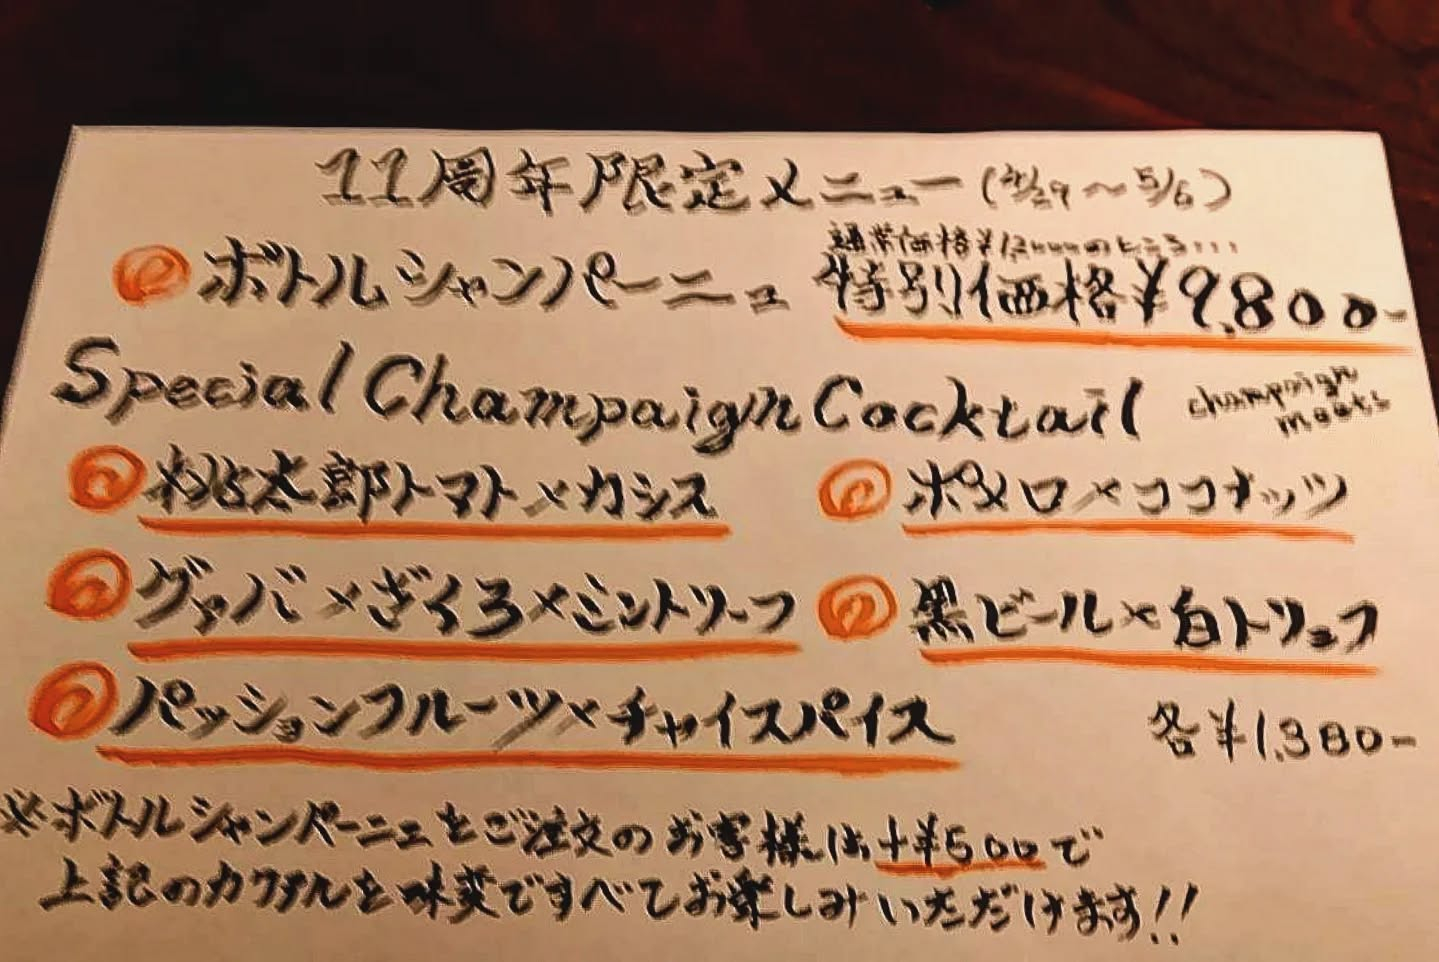 11周年限定メニュー (4/29〜5/6)
通常価格¥12,000のところ...
ボトルシャンパーニュ 特別価格¥9,800-
Special Champaign Cocktail champaign meets
桃太郎トマト×カシス ポメロ×ココナッツ
グァバ×ざくろ×ミントリーフ 黒ビール×白トリュフ
パッションフルーツ×チャイスパイス
各¥1,380-
※ボトルシャンパーニュをご注文のお客様は+¥500で
上記のカクテルを味変ですべてお楽しみいただけます!!